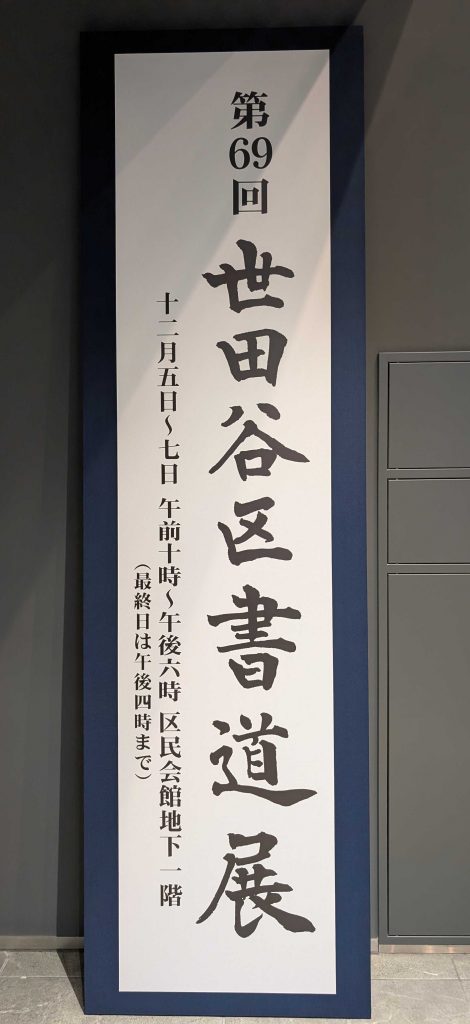 第69回 世田谷区書道展
十二月五日〜七日 午前十時〜午後六時 区民会館地下一階
（最終日は午後四時まで）